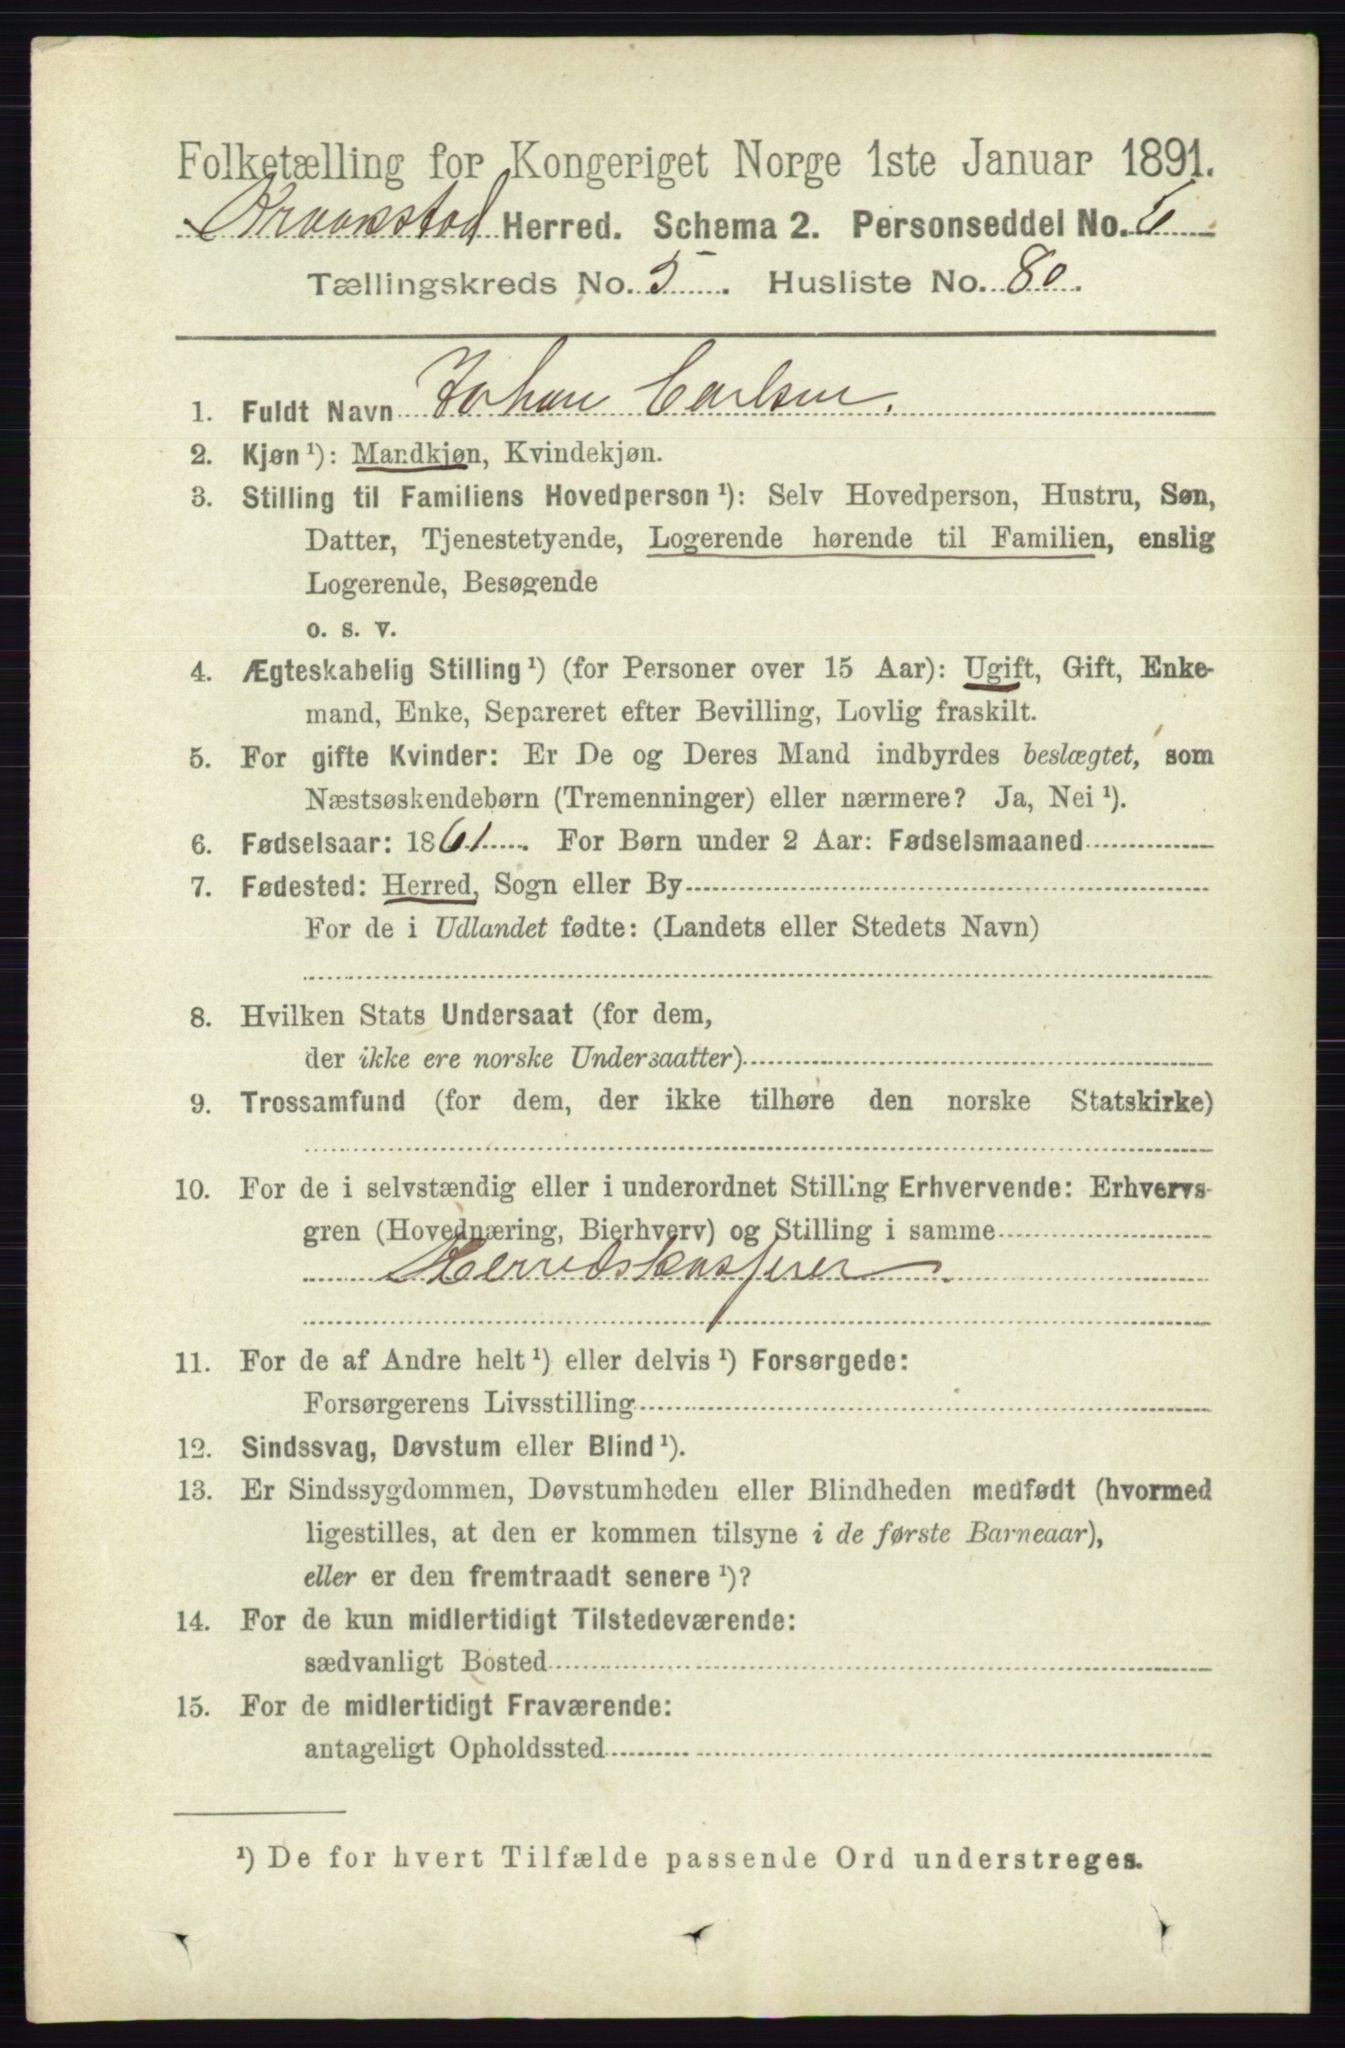 Folketælling for Kongeriget Norge 1ste Januar 1891.
Kraakstad Herred. Schema 2. Personseddel No.
Tællingskreds No. 5. Husliste No. 80.
1. Fuldt Navn Johan Carlsen.
2. Kjøn ¹): Mandkjøn, Kvindekjøn.
3. Stilling til Familiens Hovedperson ¹): Selv Hovedperson, Hustru, Søn,
Datter, Tjenestetyende, Logerende hørende til Familien, enslig
Logerende, Besøgende
o. s. v.
4. Ægteskabelig Stilling ¹) (for Personer over 15 Aar): Ugift, Gift, Enke-
mand, Enke, Separeret efter Bevilling, Lovlig fraskilt.
5. For gifte Kvinder: Er De og Deres Mand indbyrdes beslægtet, som
Næstsøskendebørn (Tremenninger) eller nærmere? Ja, Nei ¹).
6. Fødselsaar: 1861. For Børn under 2 Aar: Fødselsmaaned
7. Fødested: Herred, Sogn eller By
For de i Udlandet fødte: (Landets eller Stedets Navn)
8. Hvilken Stats Undersaat (for dem,
der ikke ere norske Undersaatter)
9. Trossamfund (for dem, der ikke tilhøre den norske Statskirke)
10. For de i selvstændig eller i underordnet Stilling Erhvervende: Erhvervs-
gren (Hovednæring, Bierhverv) og Stilling i samme
Herredskasserer.
11. For de af Andre helt ¹) eller delvis ¹) Forsørgede:
Forsørgerens Livsstilling
12. Sindssvag, Døvstum eller Blind ¹).
13. Er Sindssygdommen, Døvstumheden eller Blindheden medfødt (hvormed
ligestilles, at den er kommen tilsyne i de første Barneaar),
eller er den fremtraadt senere ¹)?
14. For de kun midlertidigt Tilstedeværende:
sædvanligt Bosted
15. For de midlertidigt Fraværende:
antageligt Opholdssted
¹) De for hvert Tilfælde passende Ord understreges.